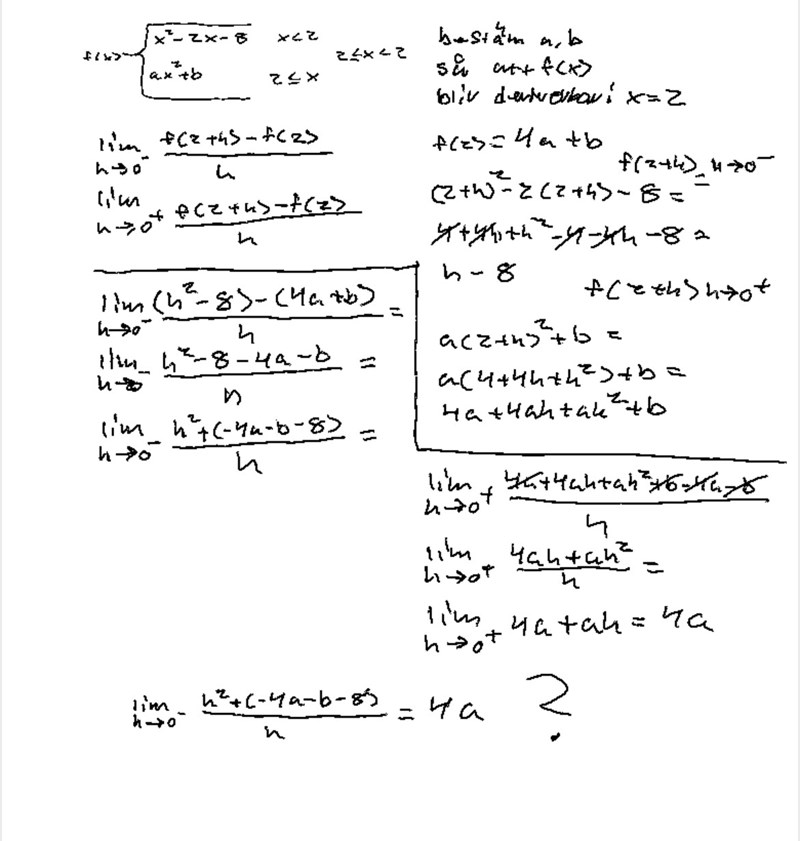 f(x) = { x²-2x-8   x<2
ax²+b   2≤x
2≤x<2
bestäm a, b
så att f(x)
blir deriverbar i x=2
lim h→0⁻ (f(2+h)-f(2))/h
lim h→0⁺ (f(2+h)-f(2))/h
f(2)=4a+b
f(2+h) h→0⁻
(2+h)²-2(2+h)-8 =
4+4h+h²-4-4h-8 =
h-8
f(2+h) h→0⁺
a(2+h)²+b =
a(4+4h+h²)+b =
4a+4ah+ah²+b
lim h→0⁻ ((h²-8)-(4a+b))/h =
lim h→0⁻ (h²-8-4a-b)/h =
lim h→0⁻ (h²+(-4a-b-8))/h =
lim h→0⁺ (4a+4ah+ah²+b-4a-b)/h
lim h→0⁺ (4ah+ah²)/h =
lim h→0⁺ 4a+ah = 4a
lim h→0⁻ (h²+(-4a-b-8))/h = 4a ?